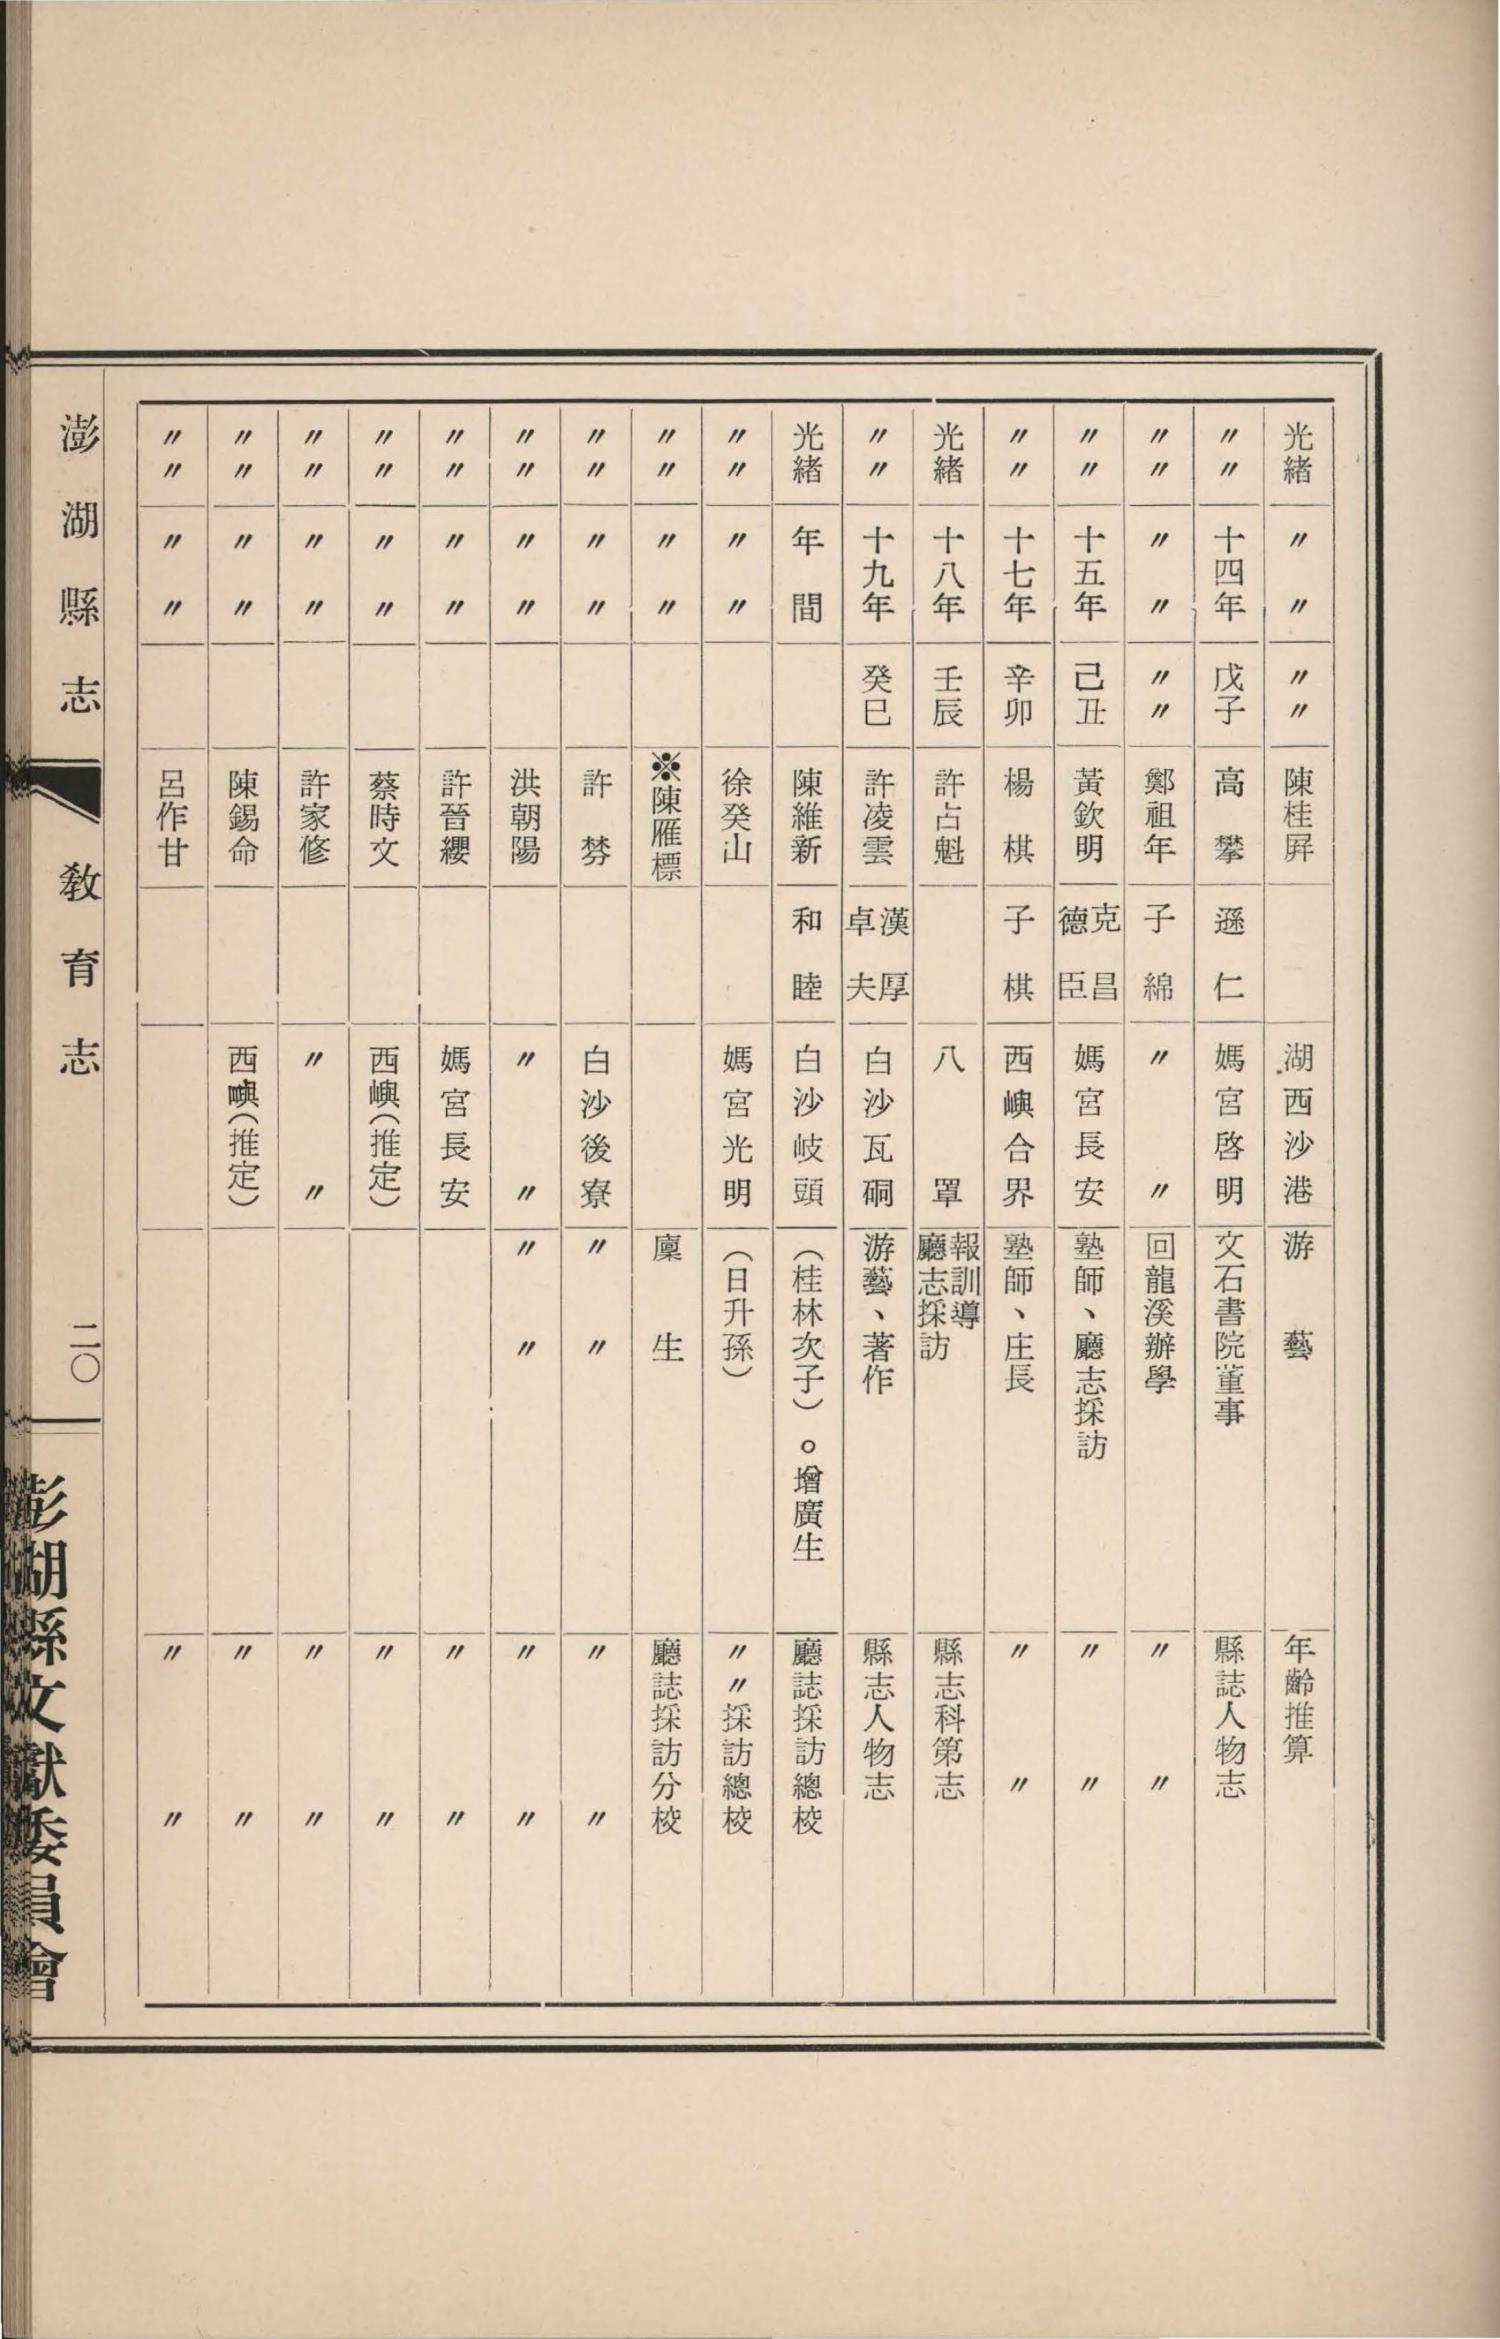 光緒 〃〃 〃〃 陳桂屛 湖西沙港 游藝 年齡推算
〃〃 十四年 戊子 高攀 遜仁 媽宮啓明 文石書院董事 縣誌人物志
〃〃 〃〃 〃〃 鄭祖年 子綿 〃〃 回龍溪辦學 〃〃
〃〃 十五年 己丑 黃欽明 克昌 德臣 媽宮長安 塾師、廳志採訪 〃〃
〃〃 十七年 辛卯 楊棋 子棋 西嶼合界 塾師、庄長 〃〃
光緒 十八年 壬辰 許占魁 八罩 報訓導 廳志採訪 縣志科第志
〃〃 十九年 癸巳 許凌雲 漢厚 卓夫 白沙瓦硐 游藝、著作 縣志人物志
光緒 年間 陳維新 和睦 白沙岐頭 （桂林次子）。增廣生 廳誌採訪總校
〃〃 〃〃 徐癸山 媽宮光明 （日升孫） 〃〃採訪總校
〃〃 〃〃 ※陳雁標 廩生 廳誌採訪分校
〃〃 〃〃 許棼 白沙後寮 〃〃 〃〃
〃〃 〃〃 洪朝陽 〃〃 〃〃 〃〃
〃〃 〃〃 許晉纓 媽宮長安 〃〃
〃〃 〃〃 蔡時文 西嶼（推定） 〃〃
〃〃 〃〃 許家修 〃〃 〃〃
〃〃 〃〃 陳錫命 西嶼（推定） 〃〃
〃〃 〃〃 呂作甘 〃〃
澎湖縣志 敎育志 二〇
澎湖縣文獻委員會